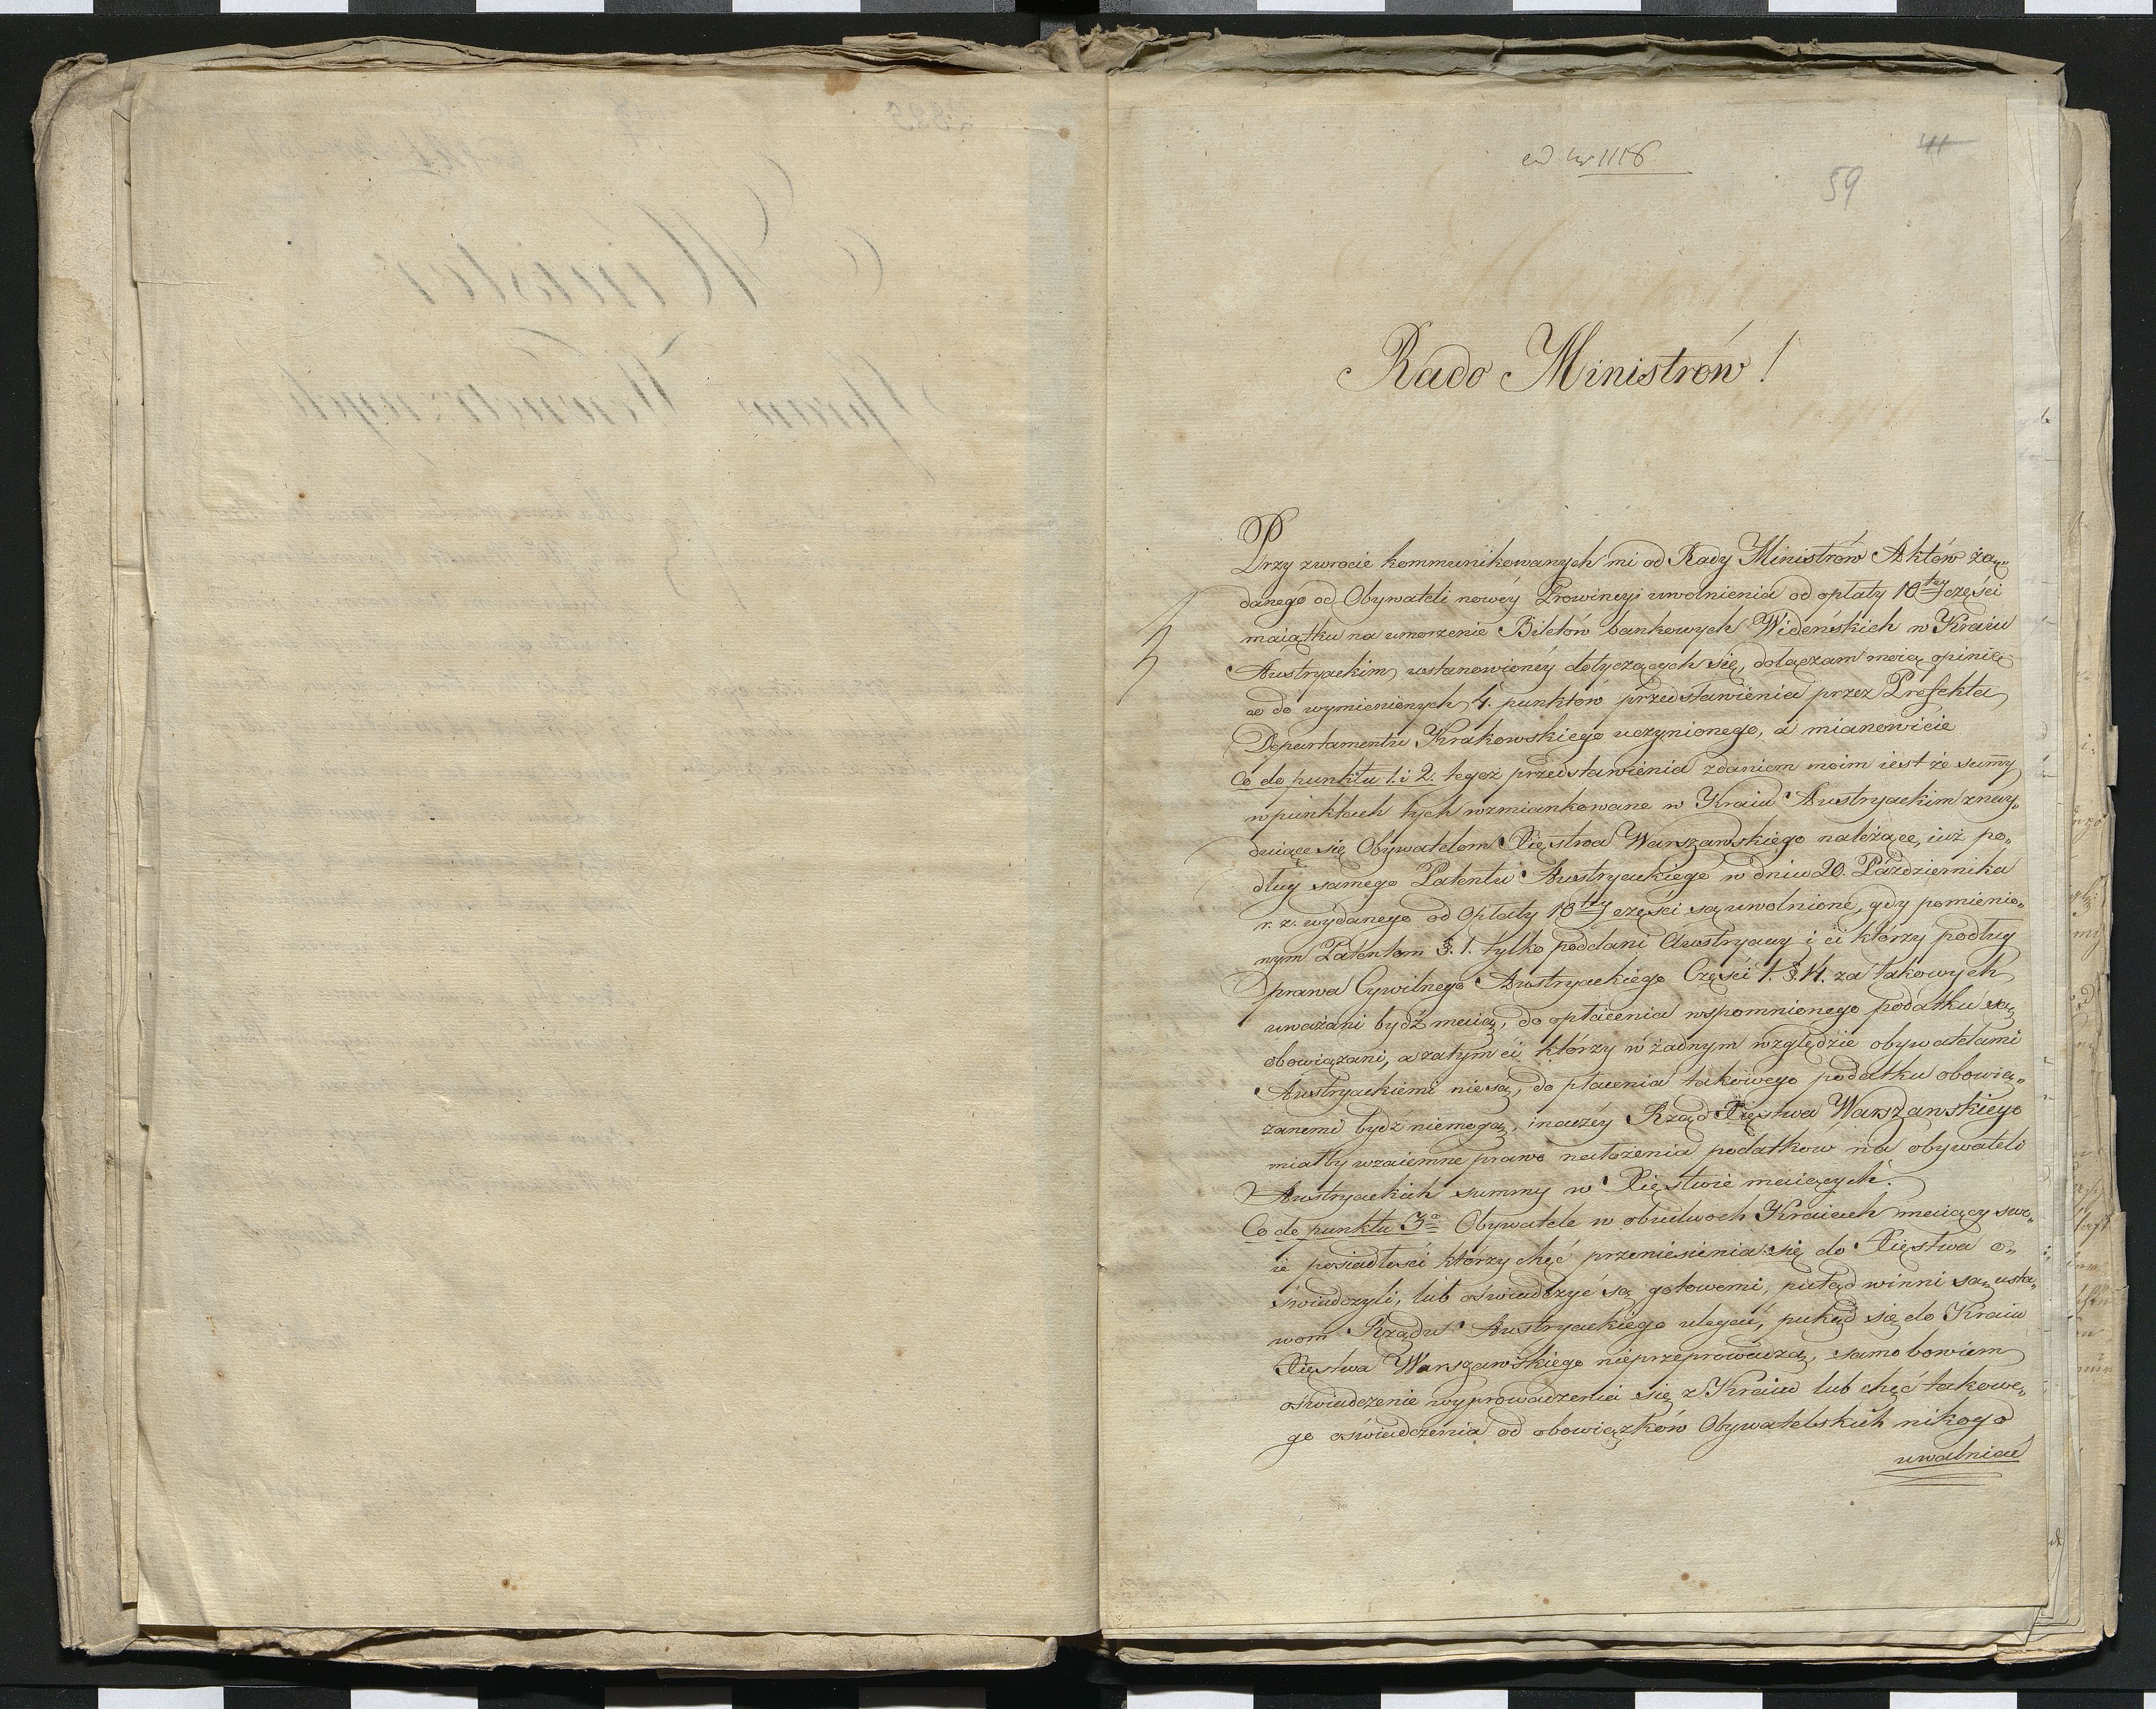 ad Nr 1116
41
59
Rado Ministrów!
Przy zwrocie kommunikowanych mi od Rady Ministrów Aktów żą„
danego od Obywateli nowéy Prowincyi uwolnienia od opłaty 10tey części
maiątku na umorzenie Biletów bankowych Wideńskich w Kraiu
Austryackim ustanowionéy dotyczących się, dołączam moią opinię
co do wymienionych 4. punktów przedstawienia przez Prefekta
Departamentu Krakowskiego uczynionego, a mianowicie
Co do punktu 1. i 2. tegoż przedstawienia zdaniem moim iest że sumy
w punktach tych wzmiankowane w Kraiu Austryackim znay„
duiące się Obywatelom Xięstwa Warszawskiego należące, iuż po„
dług samego Patentu Austryackiego w dniu 20. Października
r. z. wydanego od Opłaty 10tey części są uwolnione, gdy pomienio„
nym Patentem §. 1. tylko poddani Austryaccy i ci którzy podług
prawa Cywilnego Austryackiego Części 1. §. 4. za takowych
uważani bydź maią, do opłacenia wspomnionego podatku są
obowiązani, a zatym ci którzy w żadnym względzie obywatelami
Austryackiemi niesą, do płacenia takowego podatku obowią„
zanemi bydź niemogą, inaczéy Rząd Xięstwa Warszawskiego
miałby wzaiemne prawo nałożenia podatków na obywateli
Austryackich summy w Xięstwie maiących.
Co do punktu 3o Obywatele w obudwoch Kraiach maiący swo„
ie posiadłości którzy chęć przeniesienia się do Xięstwa o„
świadczyli, lub oświadczyć są gotowemi, putąd winni są usta„
wom Rządu Austryackiego ulegać, pukąd się do Kraiu
Xięstwa Warszawskiego nieprzeprowadzą, samo bowiem
oświadczenie wyprowadzenia się z Kraiu lub chęć takowe„
go oświadczenia od obowiązków Obywatelskich nikogo
uwalniać